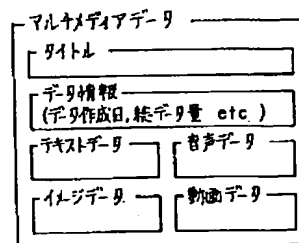 マルチメディアデータ
タイトル
データ情報
(データ作成日,総データ量 etc.)
テキストデータ
音声データ
イメージデータ
動画データ